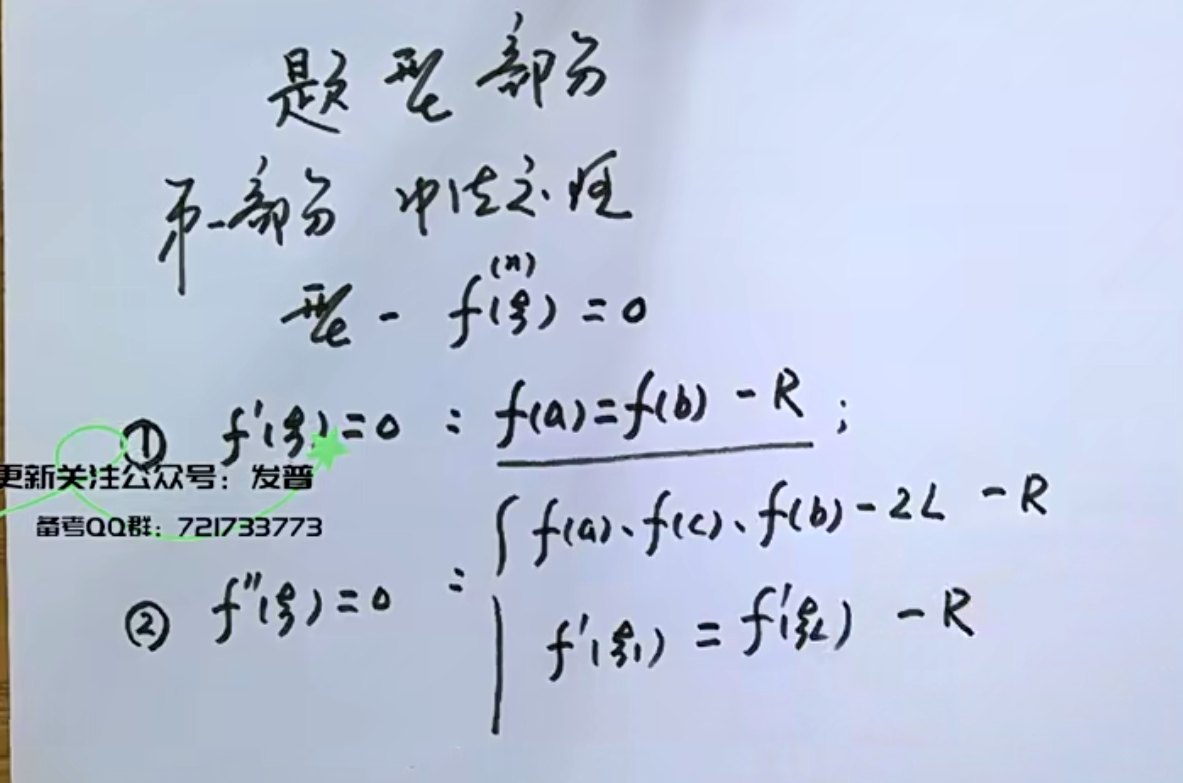 题型部分
第一部分 中值定理
型一 f⁽ⁿ⁾(ξ)=0
① f'(ξ)=0 : f(a)=f(b) - R ;
更新关注公众号：发普
备考QQ群：721733773
② f''(ξ)=0 : { f(a)、f(c)、f(b) - 2L - R
f'(ξ₁) = f'(ξ₂) - R